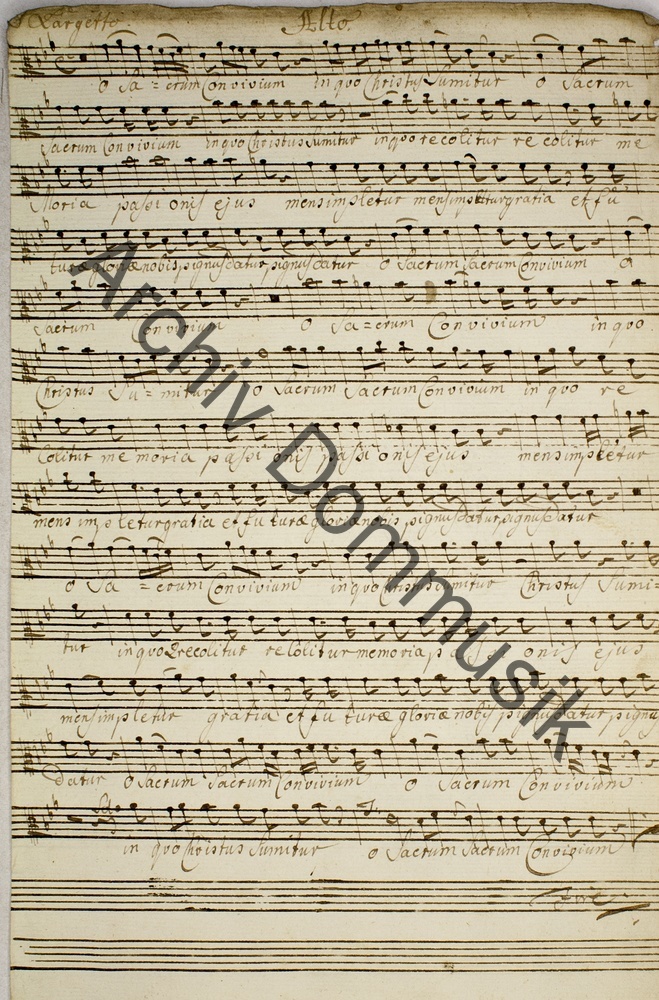 Largetto. Alto.
O Sa = crum Convivium in quo Christus Sumitur O Sacrum
Sacrum Convivium in quo Christus Sumitur in quo recolitur re colitur me
Moria passi onis ejus mens impletur mens impletur gratia et fu
turæ gloriæ nobis pignus datur pignus datur O Sacrum Sacrum Convivium O
Sacrum Convivium O Sa = crum Convivium in quo
Christus Su = mitur O Sacrum Sacrum Convivium in quo re
Colitur me moria passi onis passi onis ejus mens impletur
mens impleturgratia et fu turæ gloriæ nobis pignus datur pignus datur
O Sa = crum Convivium in quo Christus Sumitur Christus Sumi =
tur in quo recolitur re Colitur memoria passi onis ejus
mens impletur gratia et fu turæ gloriæ nobis pignus datur pignus
datur O Sacrum Sacrum Convivium O Sacrum Convivium
in quo Christus Sumitur O Sacrum Sacrum Convivium
Archiv Dommusik